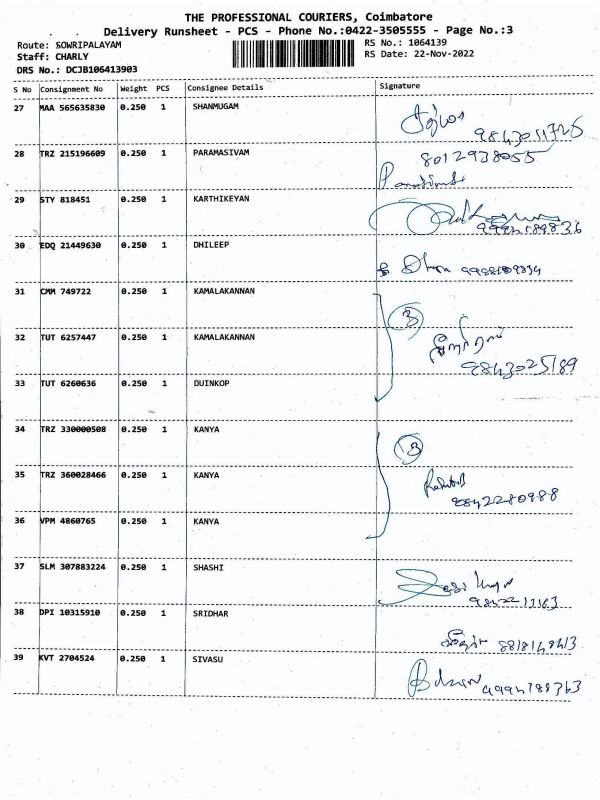 THE PROFESSIONAL COURIERS, Coimbatore
Delivery Runsheet - PCS - Phone No.:0422-3505555 - Page No.:3
Route: SOWRIPALAYAM
RS No.: 1064139
Staff: CHARLY
RS Date: 22-Nov-2022
DRS No.: DCJB106413903
S No Consignment No Weight PCS Consignee Details Signature
27 MAA 565635830 0.250 1 SHANMUGAM
28 TRZ 215196609 0.250 1 PARAMASIVAM
8012938055
29 STY 818451 0.250 1 KARTHIKEYAN
30 EDQ 21449630 0.250 1 DHILEEP
31 CMM 749722 0.250 1 KAMALAKANNAN
3
32 TUT 6257447 0.250 1 KAMALAKANNAN
9843025189
33 TUT 6260636 0.250 1 DUINKOP
34 TRZ 330000508 0.250 1 KANYA
3
35 TRZ 360028466 0.250 1 KANYA
9842280988
36 VPM 4860765 0.250 1 KANYA
37 SLM 307883224 0.250 1 SHASHI
38 DPI 10315910 0.250 1 SRIDHAR
39 KVT 2704524 0.250 1 SIVASU